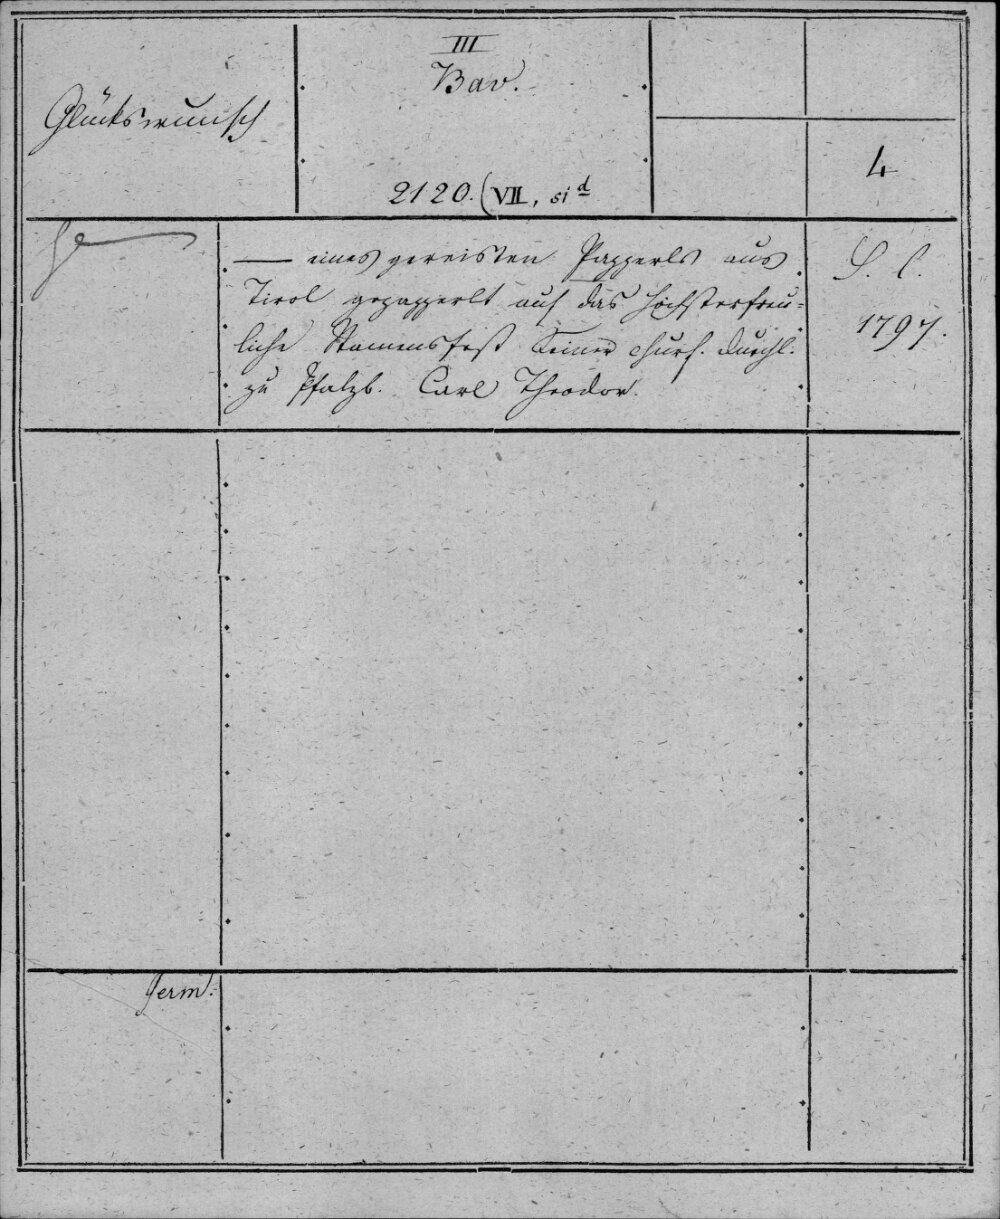 III
Bav.
Glückswunsch
4
2120. (VII, si d
— eines gereisten Papperls aus
Tirol gepapperlt auf das höchsterfreu-
liche Namensfest Seiner churf. Durchl.
zu Pfalzb. Carl Theodor.
S. l.
1797.
Germ.